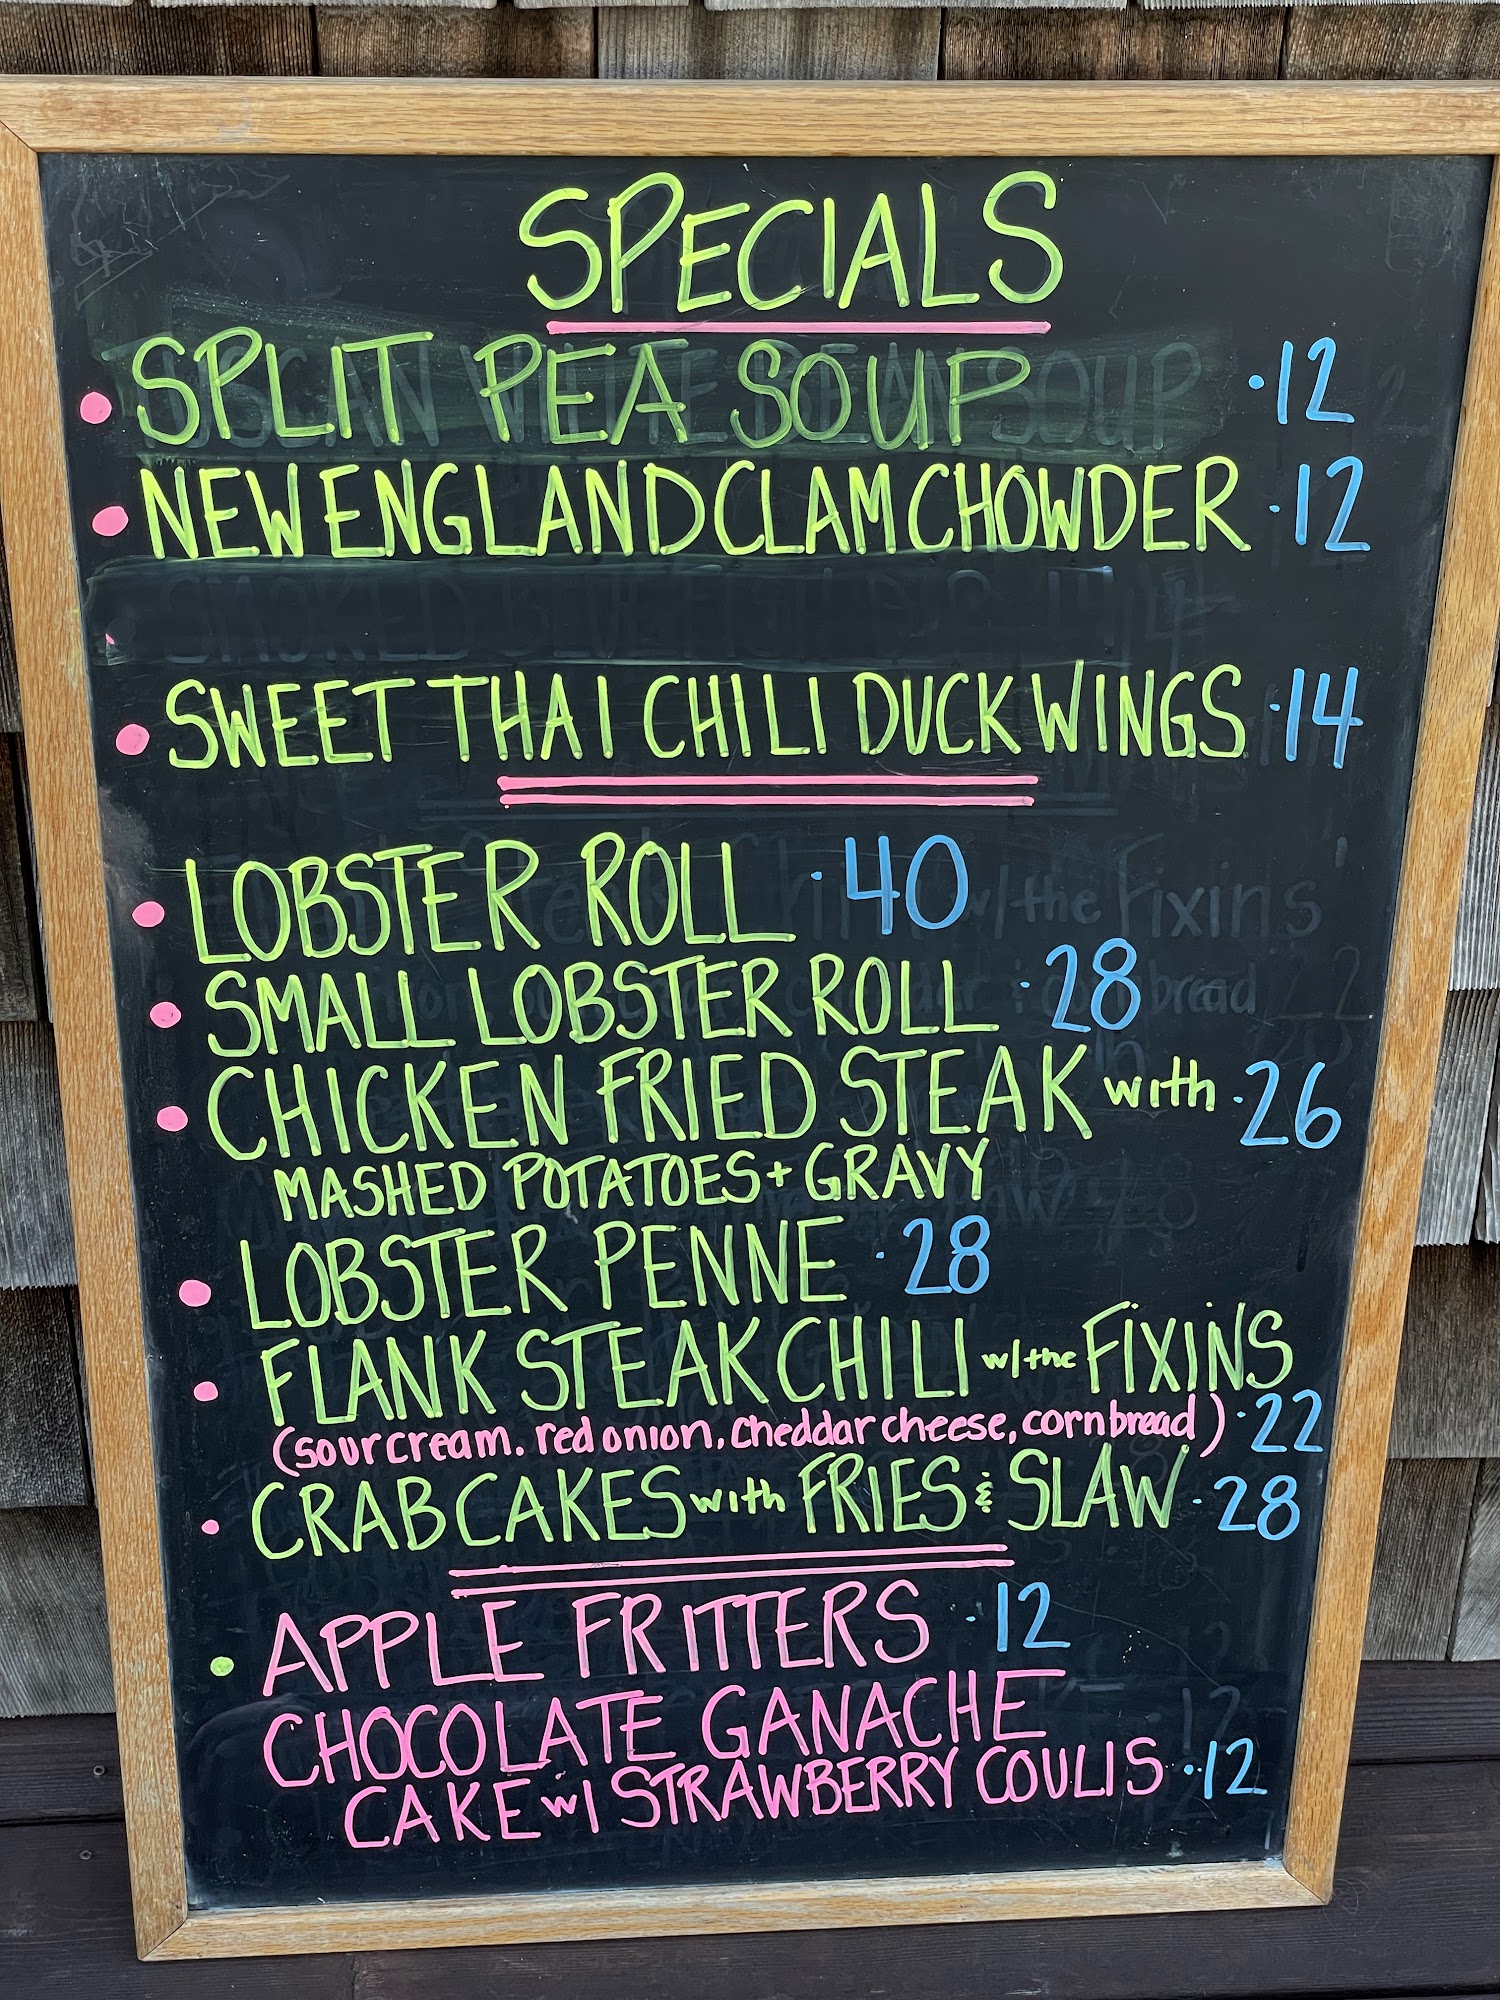 SPECIALS
SPLIT PEA SOUP ·12
NEW ENGLAND CLAM CHOWDER ·12
SWEET THAI CHILI DUCK WINGS ·14
LOBSTER ROLL ·40
SMALL LOBSTER ROLL ·28
CHICKEN FRIED STEAK with ·26
MASHED POTATOES + GRAVY
LOBSTER PENNE ·28
FLANK STEAK CHILI w/ the FIXINS
(sour cream. red onion, cheddar cheese, corn bread) ·22
CRAB CAKES with FRIES & SLAW ·28
APPLE FRITTERS ·12
CHOCOLATE GANACHE
CAKE w/ STRAWBERRY COULIS ·12